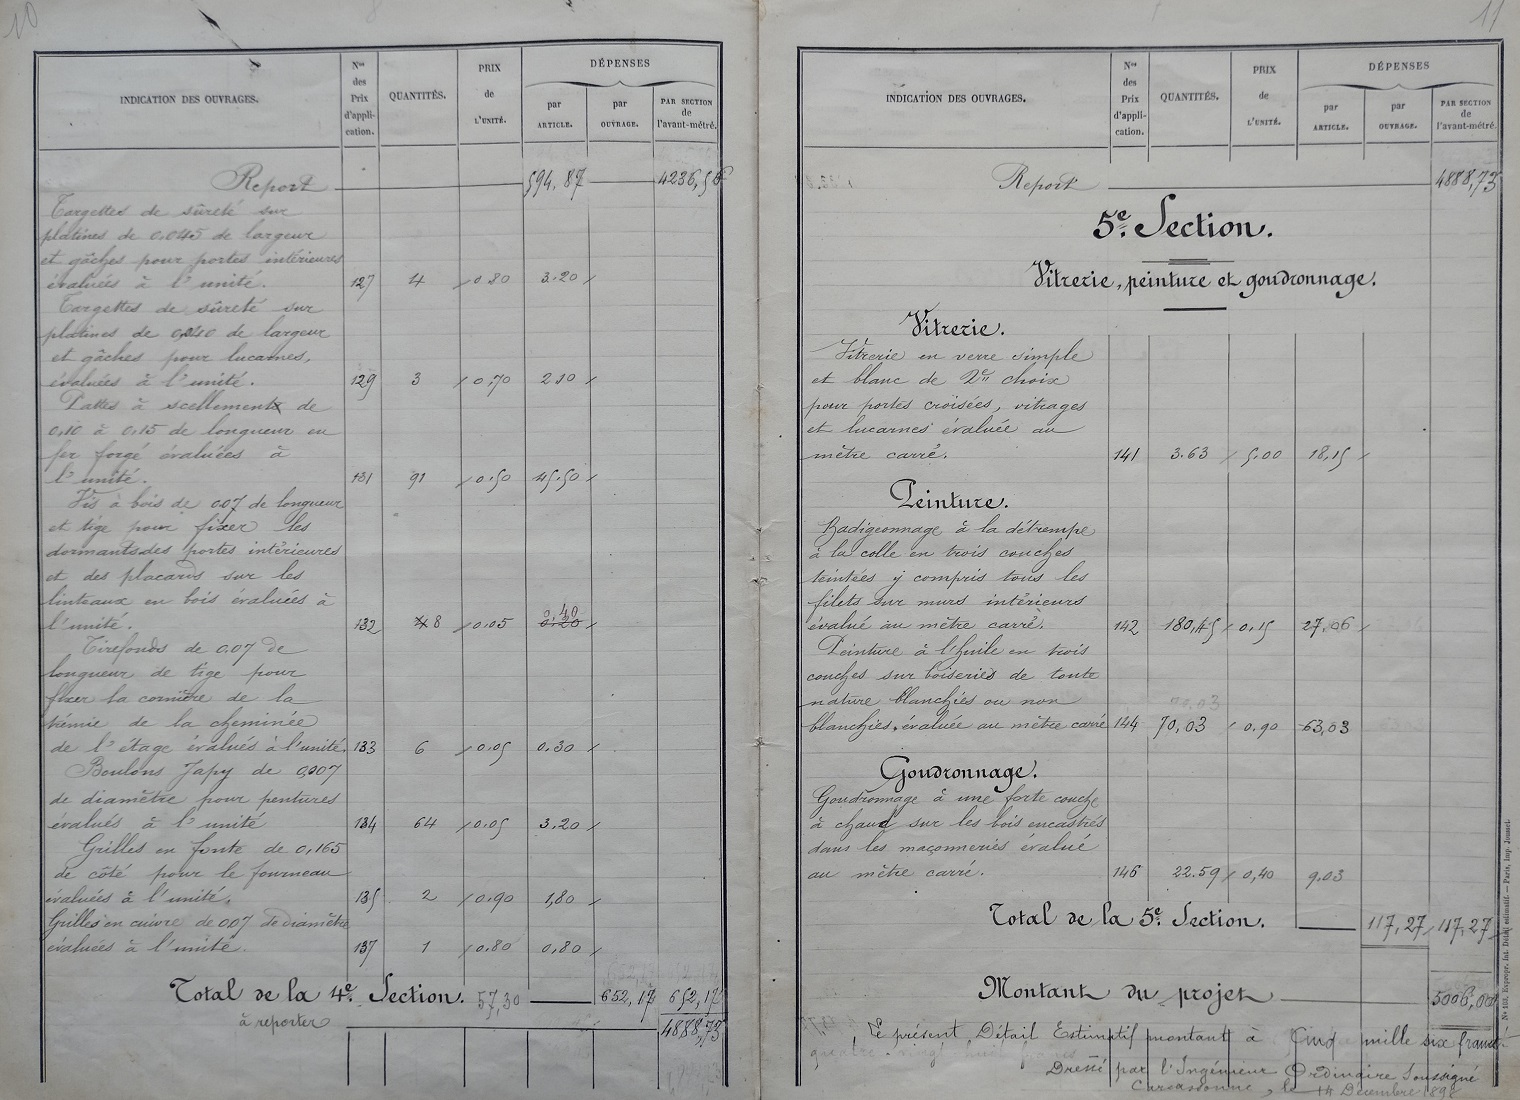 10
INDICATION DES OUVRAGES.
Nos des Prix d'appli-cation.
QUANTITÉS.
PRIX de L'UNITÉ.
DÉPENSES
par ARTICLE.
par OUVRAGE.
PAR SECTION de l'avant-métré.
Report 594,87 4236,56
Targettes de sûreté sur
platines de 0,045 de largeur
et gâches pour portes intérieures
évaluées à l'unité. 127 4 0.80 3.20
Targettes de sûreté sur
platines de 0,040 de largeur
et gâches pour lucarnes,
évaluées à l'unité. 129 3 0,70 2.10
Pattes à scellement de
0,10 à 0,15 de longueur en
fer forgé évaluées à
l'unité. 131 91 0.50 45.50
Vis à bois de 0.07 de longueur
et tige pour fixer les
dormants des portes intérieures
et des placards sur les
linteaux en bois évaluées à
l'unité. 132 4 8 0.05 0.20 0.40
Tirefonds de 0.07 de
longueur de tige pour
fixer la cornière de la
trémie de la cheminée
de l'étage évalués à l'unité. 133 6 0.05 0.30
Boulons Japy de 0,007
de diamètre pour pentures
évalués à l'unité 134 64 0.05 3.20
Grilles en fonte de 0,165
de côté pour le fourneau
évaluées à l'unité. 135 2 0.90 1,80
Grilles en cuivre de 0.07 de diamètre
évaluées à l'unité. 137 1 0.80 0.80
Total de la 4e Section. 57,30 652,17 652,17
à reporter 4888,73
11
INDICATION DES OUVRAGES.
Nos des Prix d'appli-cation.
QUANTITÉS.
PRIX de L'UNITÉ.
DÉPENSES
par ARTICLE.
par OUVRAGE.
PAR SECTION de l'avant-métré.
Report 4888,73
5e Section.
Vitrerie, peinture et goudronnage.
Vitrerie.
Vitrerie en verre simple
et blanc de 2e choix
pour portes croisées, vitrages
et lucarnes évaluée au
mètre carré. 141 3.63 5.00 18,15
Peinture.
Badigeonnage à la détrempe
à la colle en trois couches
teintées y compris tous les
filets sur murs intérieurs
évalué au mètre carré. 142 180,45 0,15 27.06
Peinture à l'huile en trois
couches sur boiseries de toute
nature blanchies ou non
blanchies, évaluée au mètre carré 144 70,03 0,90 63,03
Goudronnage.
Goudronnage à une forte couche
à chaud sur les bois encastrés
dans les maçonneries évalué
au mètre carré. 146 22.59 0,40 9.03
Total de la 5e Section. 117,27 117,27
Montant du projet 5006,00
Le présent Détail Estimatif montant à Cinq mille six francs.
Dressé par l'Ingénieur Ordinaire Soussigné
Carcassonne, le 14 Décembre 1898
Expropr. Int. Détail estimatif. — Paris, Imp. Jousset.